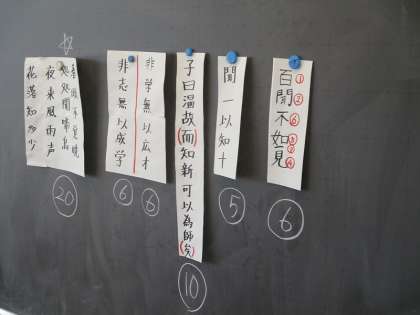 百聞不如一見
6
聞一以知十
5
子曰温故(而)知新可以為師(矣)
10
非学無以広才
6
非志無以成学
6
春眠不覚暁
処処聞啼鳥
夜来風雨声
花落知多少
20